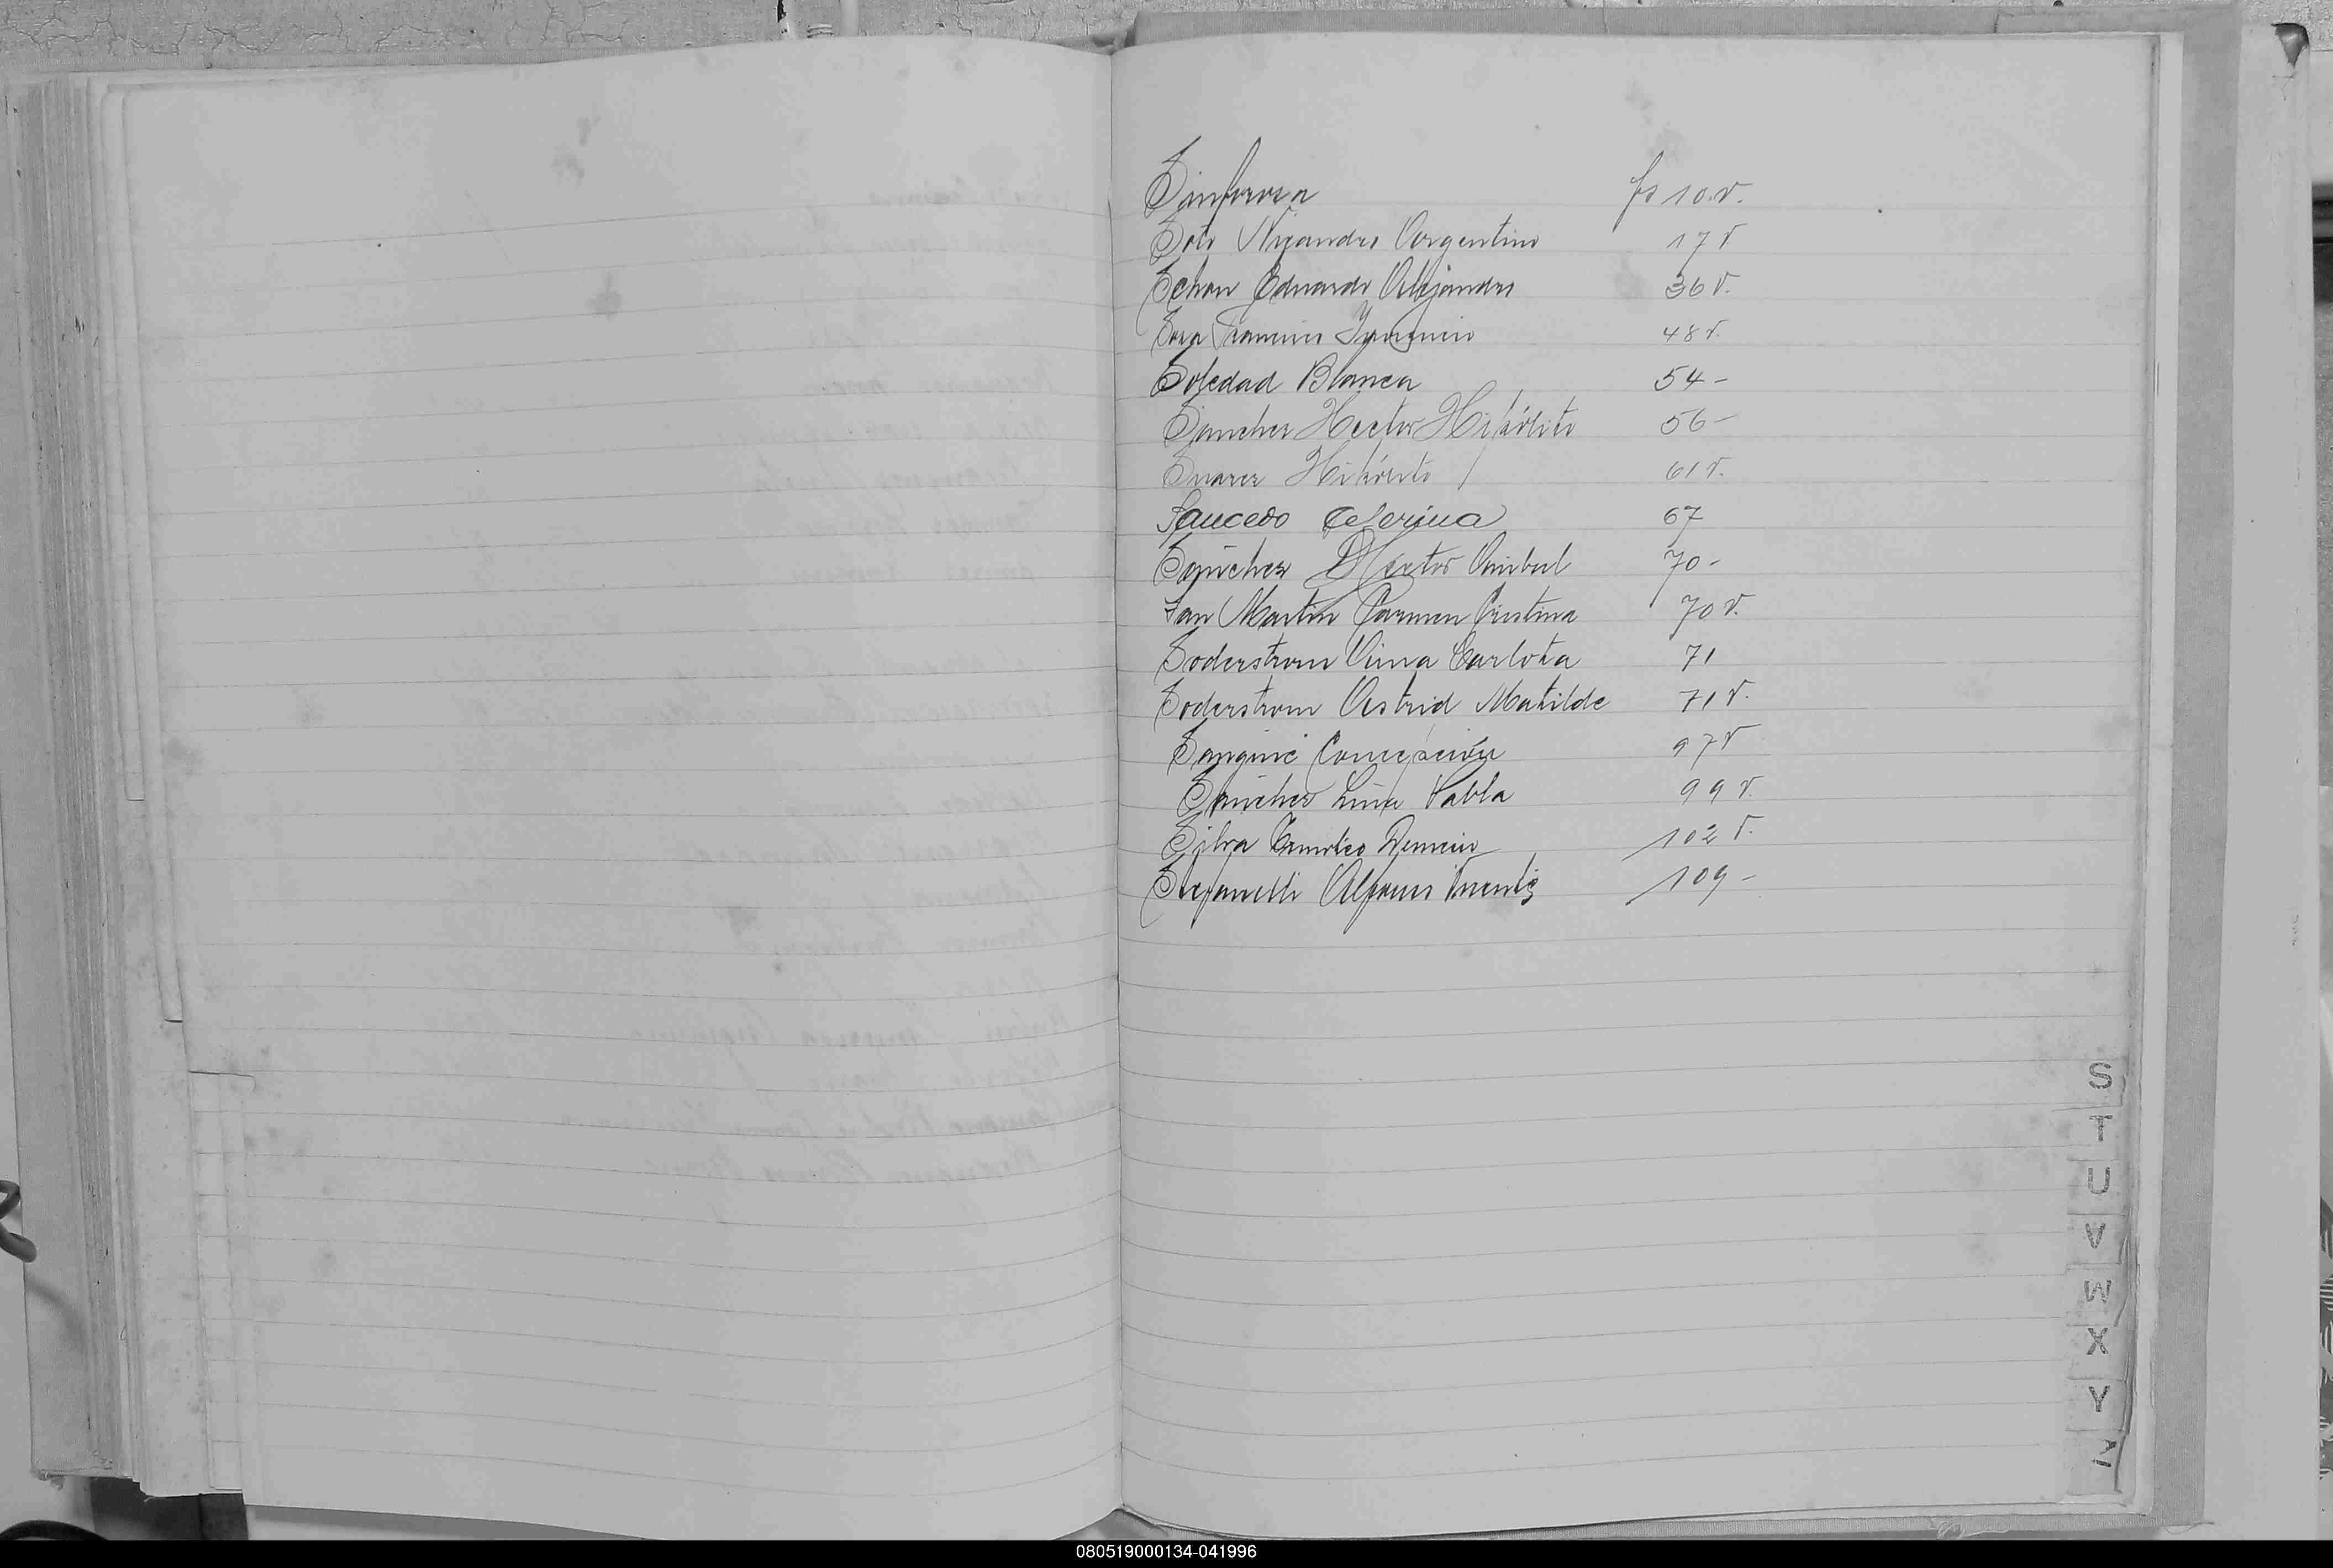 Sinforosa fs 10 v.
Soto Nicandro Argentino 17 v
Schon Eduardo Alejandro 36 v.
Sosa Francisco 48 v.
Soledad Blanca 54 -
Sanchez Hector Hipólito 56 -
Suarez Hipólito 61 v.
Saucedo Ceferina 67
Sánchez Hector Anibal 70 -
San Martin Carmen Cristina 70 v.
Soderstrom Carlota 71
Soderstrom Astrid Matilde 71 v.
Concepción 97 v
Sánchez Lina Pabla 99 v.
Silva 102 v.
Stefanelli Alfonso 109 -
S
T
U
V
W
X
Y
Z
080519000134-041996